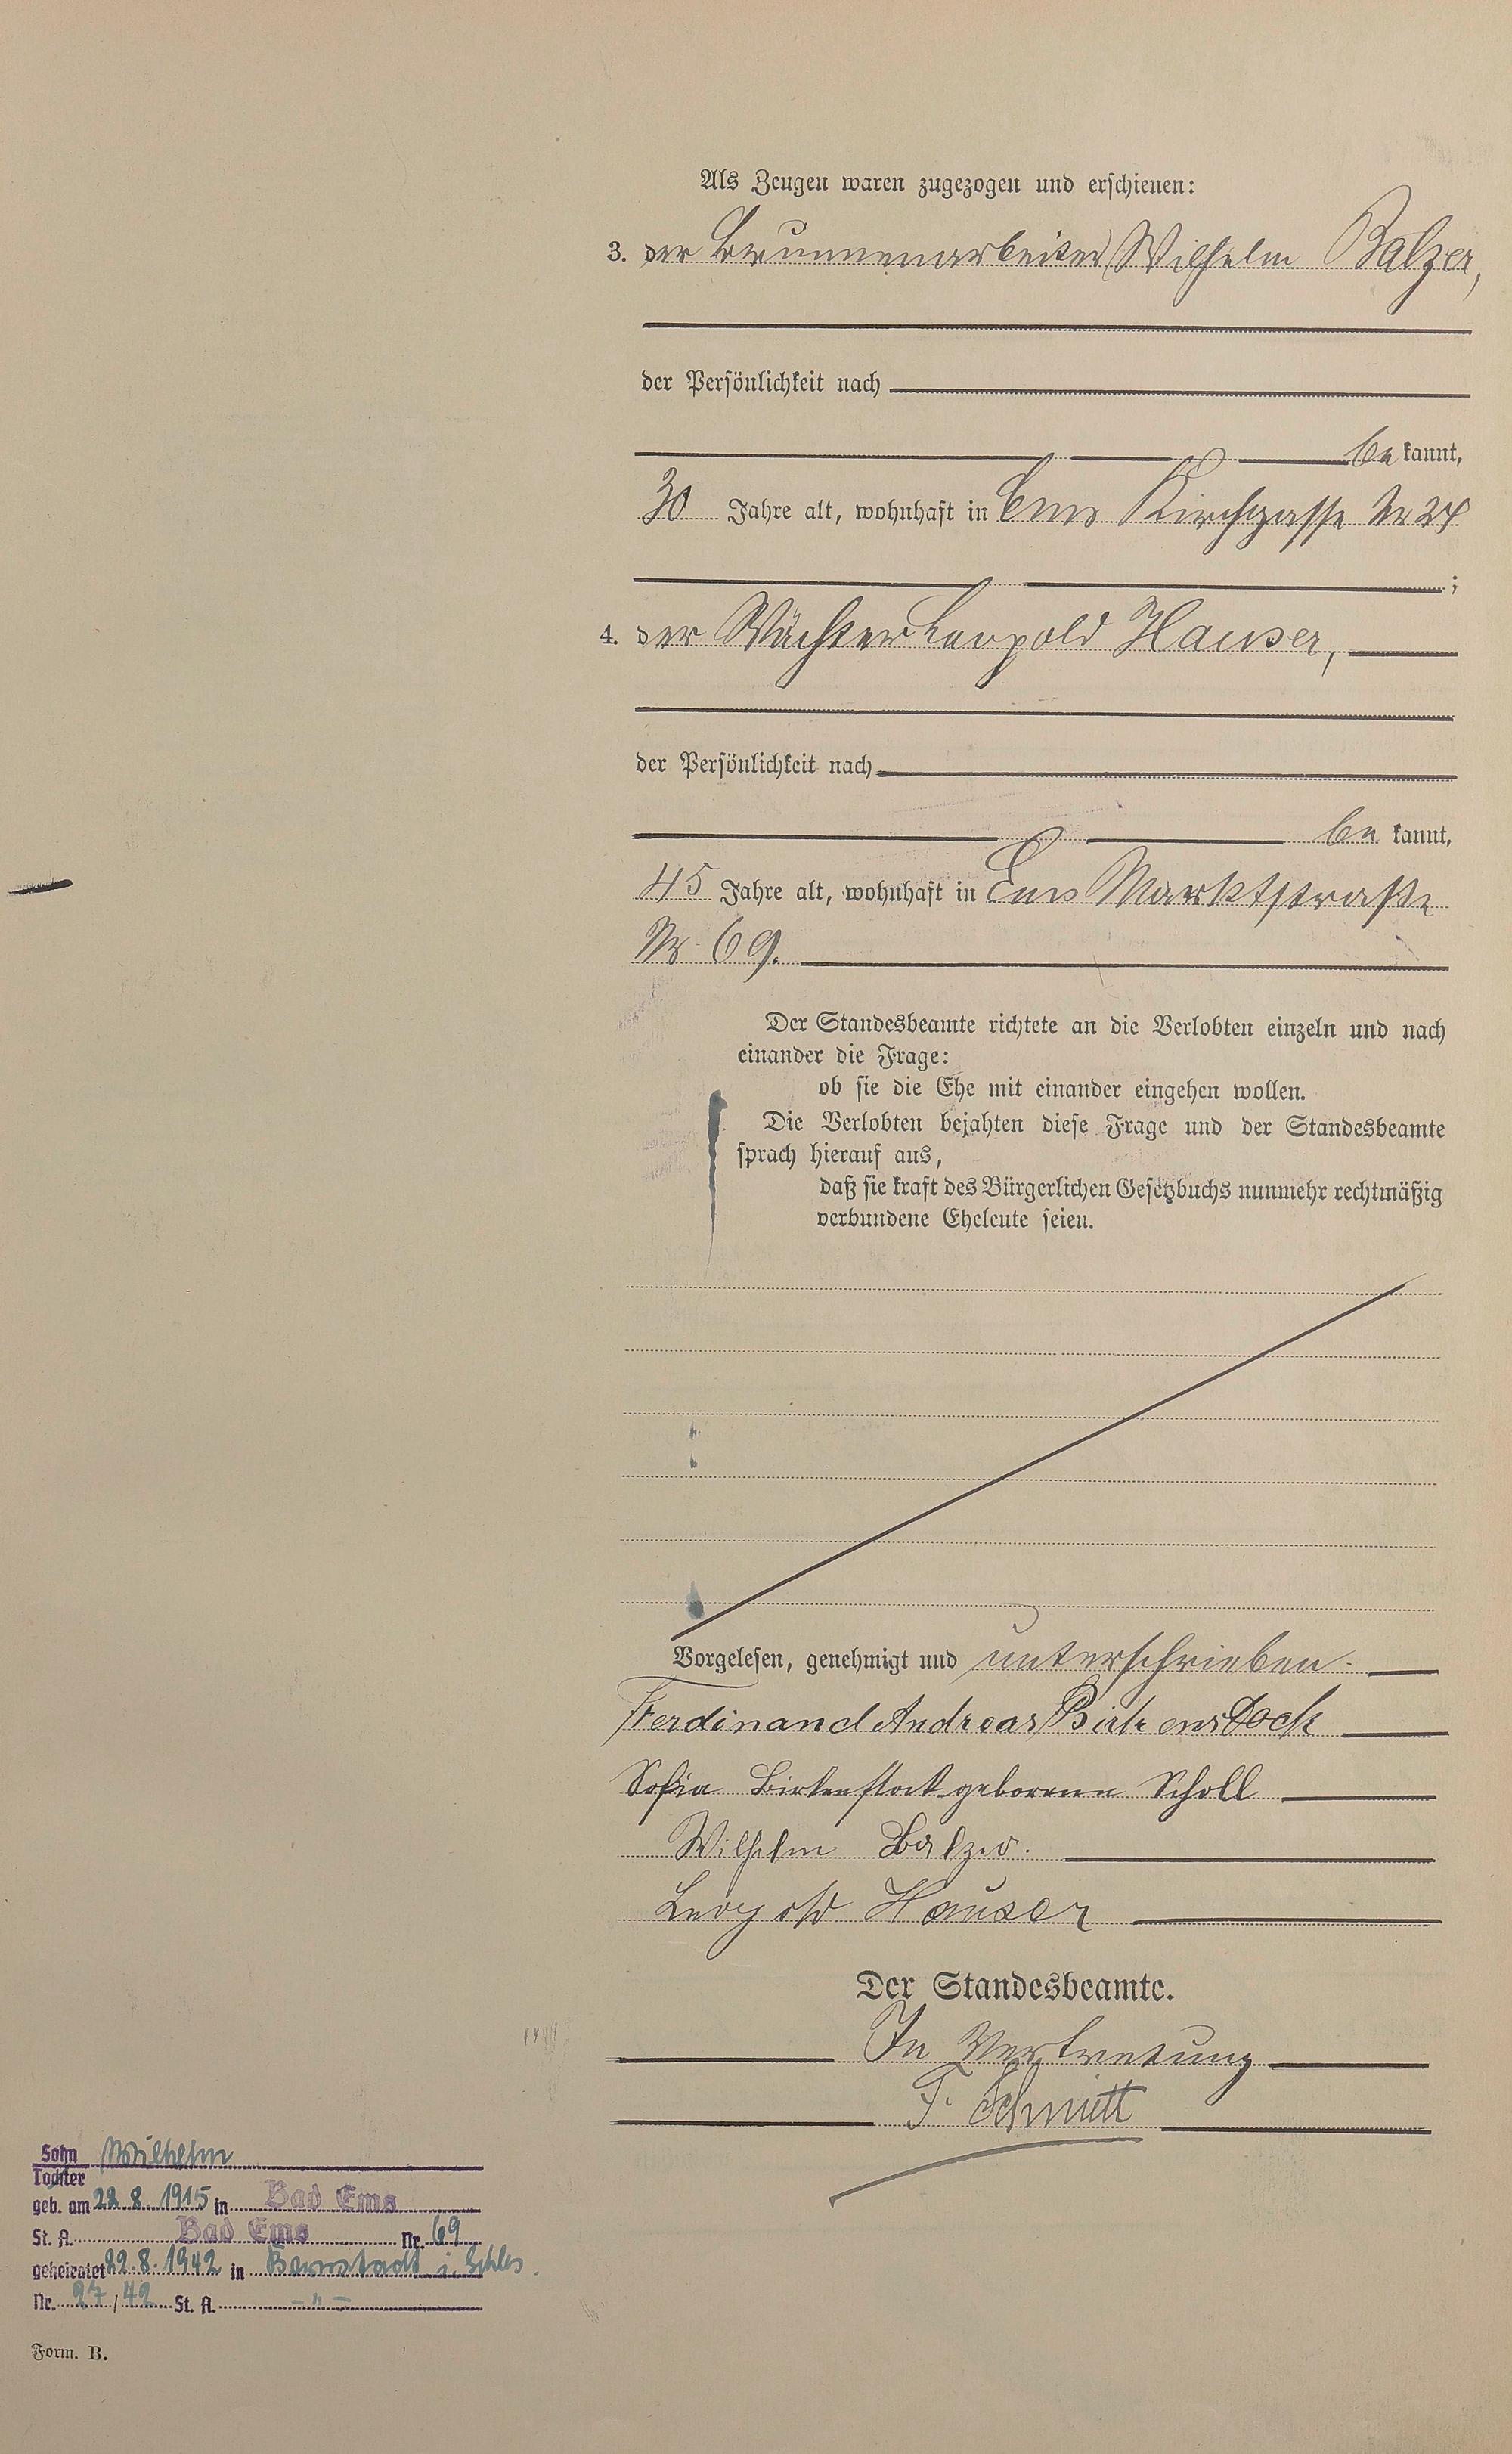 Als Zeugen waren zugezogen und erschienen:
3. der Brunnenarbeiter Wilhelm Balzer,
der Persönlichkeit nach
be kannt,
30 Jahre alt, wohnhaft in Ems Kirchgasse Nr 24
;
4. der Wächter Leopold Hauser,
der Persönlichkeit nach
be kannt,
45 Jahre alt, wohnhaft in Ems Marktstraße
Nr 69.
Der Standesbeamte richtete an die Verlobten einzeln und nach
einander die Frage:
ob sie die Ehe mit einander eingehen wollen.
Die Verlobten bejahten diese Frage und der Standesbeamte
sprach hierauf aus,
daß sie kraft des Bürgerlichen Gesetzbuchs nunmehr rechtmäßig
verbundene Eheleute seien.
Vorgelesen, genehmigt und unterschrieben.
Ferdinand Andreas Birkenstock
Sofia Birkenstock geborene Scholl
Wilhelm Balzer.
Leopold Hauser
Der Standesbeamte.
In Vertretung
F. Schmitt
Sohn Wilhelm
Tochter
geb. am 22.8.1915 in Bad Ems
St. A. Bad Ems Nr. 69
geheiratet 29.8.1942 in Bernstadt i. Schles.
Nr. 27/42 St. A. -"-
Form. B.